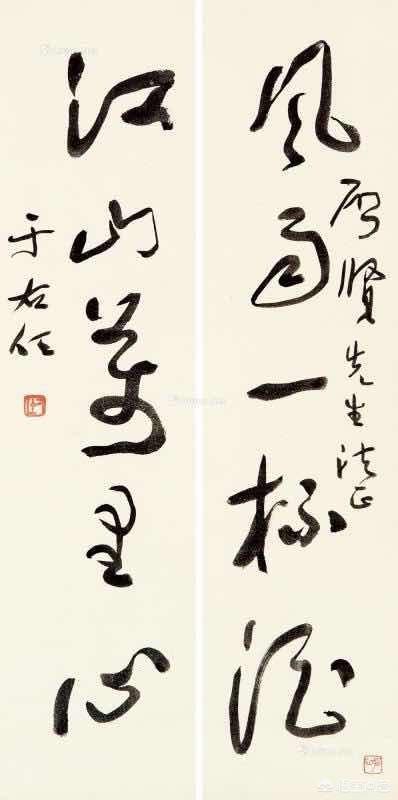 風雨一杯酒
啟賢先生法正
江山萬里心
于右任